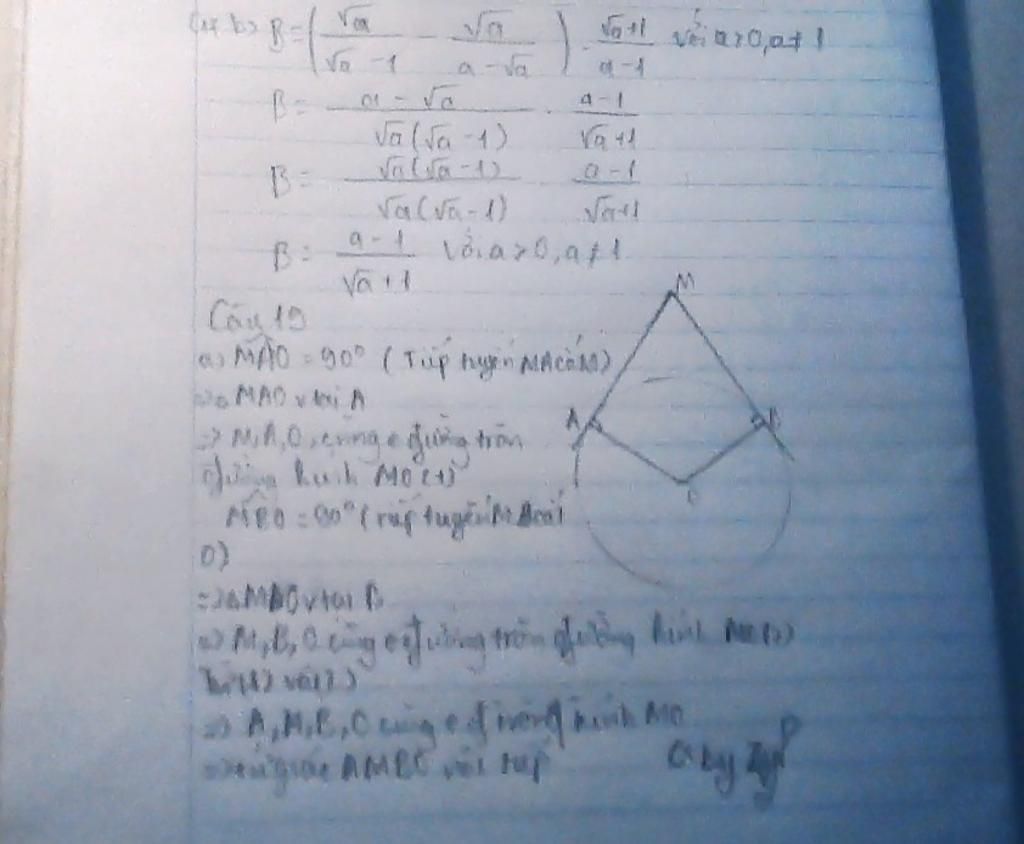 b) B = (√a/(√a - 1) - √a/(a - √a)) : (√a + 1)/(a - 1) với a > 0, a ≠ 1
B = (a - √a)/(√a(√a - 1)) · (a - 1)/(√a + 1)
B = √a(√a - 1)/(√a(√a - 1)) (a - 1)/(√a + 1)
B = (a - 1)/(√a + 1) với a > 0, a ≠ 1
Câu 19
a) MAO = 90° (Tiếp tuyến MA
=> Δ MAO v tại A
=> M, A, O, cùng e đường tròn
đường kính MO (1)
MBO = 90° (tiếp tuyến
O)
=> Δ v tại B
=> M, B, O cùng e đường tròn đường kính (2)
Từ (1) và (2)
=> A, M, B, O cùng e đường kính MO
=> tứ giác AMBO nội tiếp
by
M
A
B
O